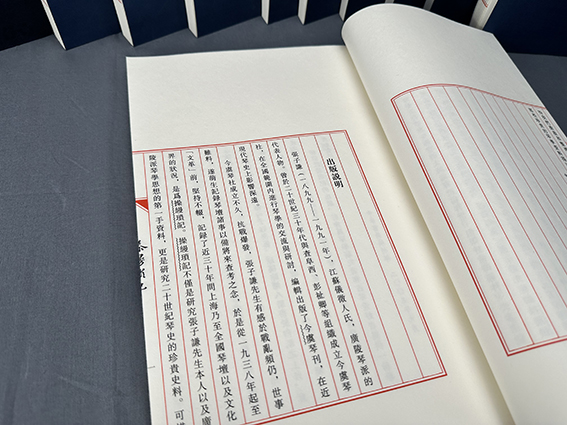 出版説明
張子謙（一八九九—一九九一年），江蘇儀徵人氏，廣陵琴派的
代表人物，曾於二十世紀三十年代與查阜西、彭祉卿等組織成立今虞琴
社，在全國範圍内進行琴學的交流與研討，編輯出版了今虞琴刊，在近
現代琴史上影響深遠。
今虞琴社成立不久，抗戰爆發，張子謙先生有感於戰亂頻仍，世事
難料，遂萌生記錄琴壇諸事以備將來查考之念，於是從一九三八年起至
「文革」前，堅持不輟，記錄了近三十年間上海乃至全國琴壇以及文化
界的狀況，是爲操縵瑣記。操縵瑣記不僅是研究張子謙先生本人以及廣
陵派琴學思想的第一手資料，更是研究二十世紀琴史的珍貴史料。可